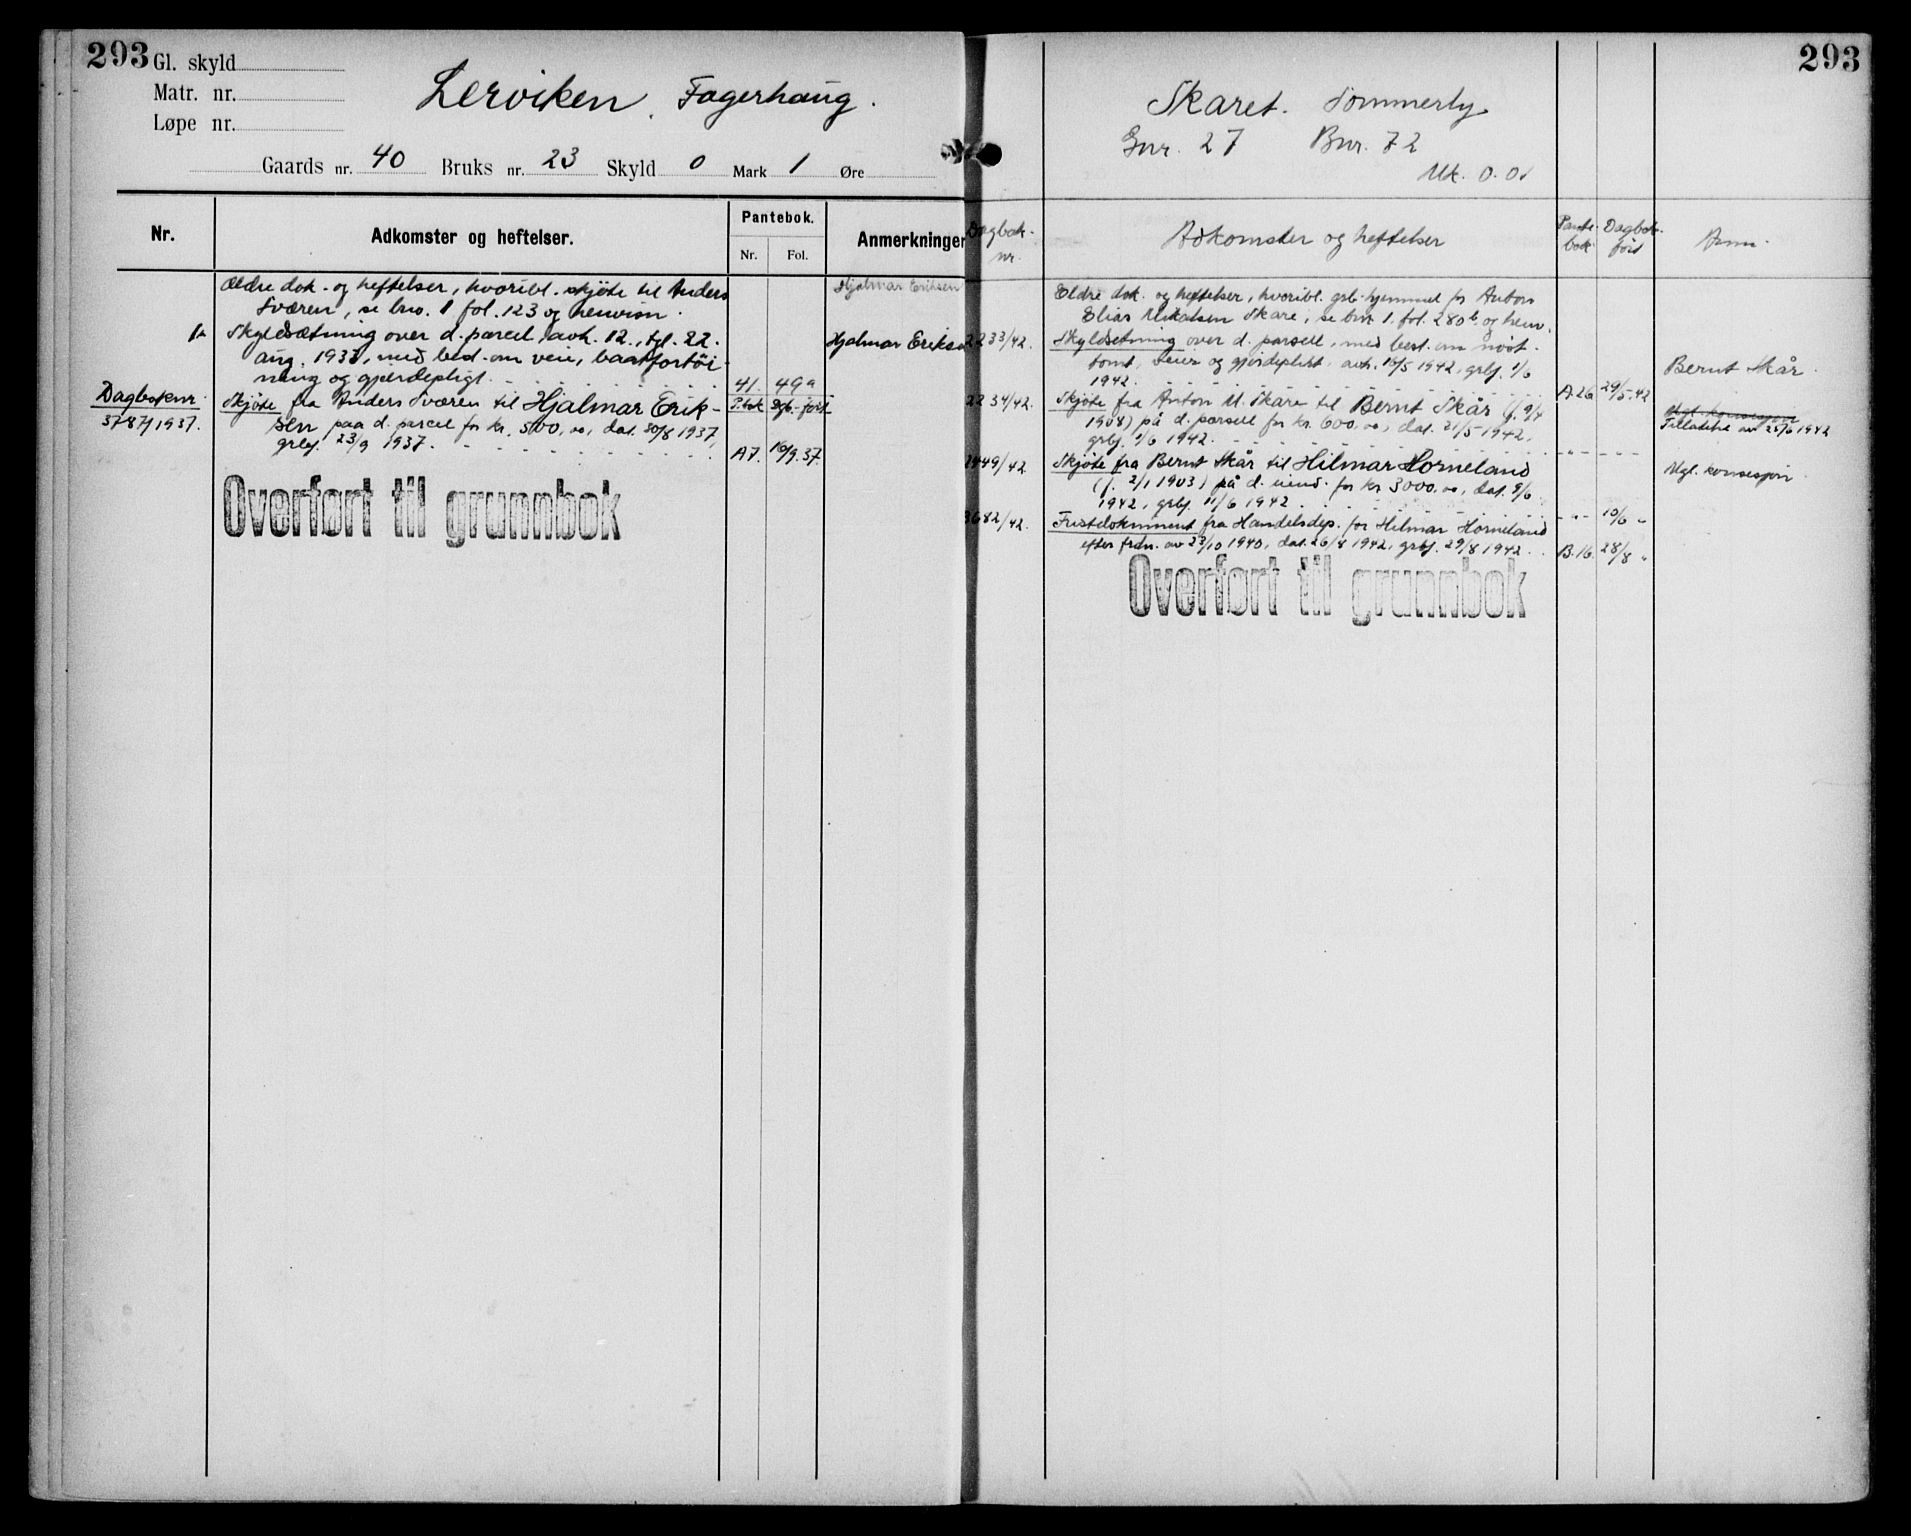 293
Gl. skyld
Matr. nr.
Løpe nr.
Lerviken, Fagerhaug.
Gaards nr. 40 Bruks nr. 23 Skyld 0 Mark 1 Øre
Nr.
Adkomster og heftelser.
Pantebok.
Nr. Fol.
Anmerkninger
Ældre dok. og heftelser, hvoribl. skjöte til Anders
Sværen, se bno. 1 fol. 123 og henvisn.
Hjalmar Eriksen
Skyldsætning over d. parcel avh. 12., tgl. 22.
Hjalmar Eriks
aug. 1931, med best. om vein, baatfortöi-
ning og gjerdepligt. 41. 49a
Dagboknr. Skjöte fra Anders Sværen til Hjalmar Erik- P.bok Dgb. ført
3787/1937. sen paa d. parcel for kr. 500,00, dat. 30/8 1937,
grbf. 23/9 1937. A7. 10/9.37.
Overført til grunnbok
293
Skaret. Sommerly
Gnr. 27 Bnr. 72
Mk. 0.01
Dagbok-
nr.
Adkomster og heftelser
Pante-
bok
Dagbok-
ført
Anm.
Eldre dok. og heftelser, hvoribl. grb. hjemmel for Anton
Elias Skare, se bnr. 1. fol. 280b og henv.
2233/42. Skyldsetning over d. parsell, med best. om nöst-
tomt, veier og gjerdeplikt, avh. 16/5 1942, grbf. 1/6
1942. A.26 29/5.42
Bernt Skår
2234/42. Skjöte fra Anton M. Skare til Bernt Skår (f. 9/4
1908) på d. parsell for kr. 600,00, dat. 21/5 1942,
grbf. 1/6 1942.
Ugl. konsesjon
Tilladelse av 25/6 1942
2449/42 Skjöte fra Bernt Skår til Hilmar Horneland
(f. 2/1 1903) på d. eiend. for kr. 3000,00, dat. 9/6
1942, grbf. 11/6 1942. 10/6 "
Ugl. konsesjon
3682/42. Fristdokument fra Handelsdep. for Hilmar Horneland
efter frdn. av 23/10 1940, dat. 26/8 1942, grbf. 29/8 1942. B.16. 28/8 "
Overført til grunnbok